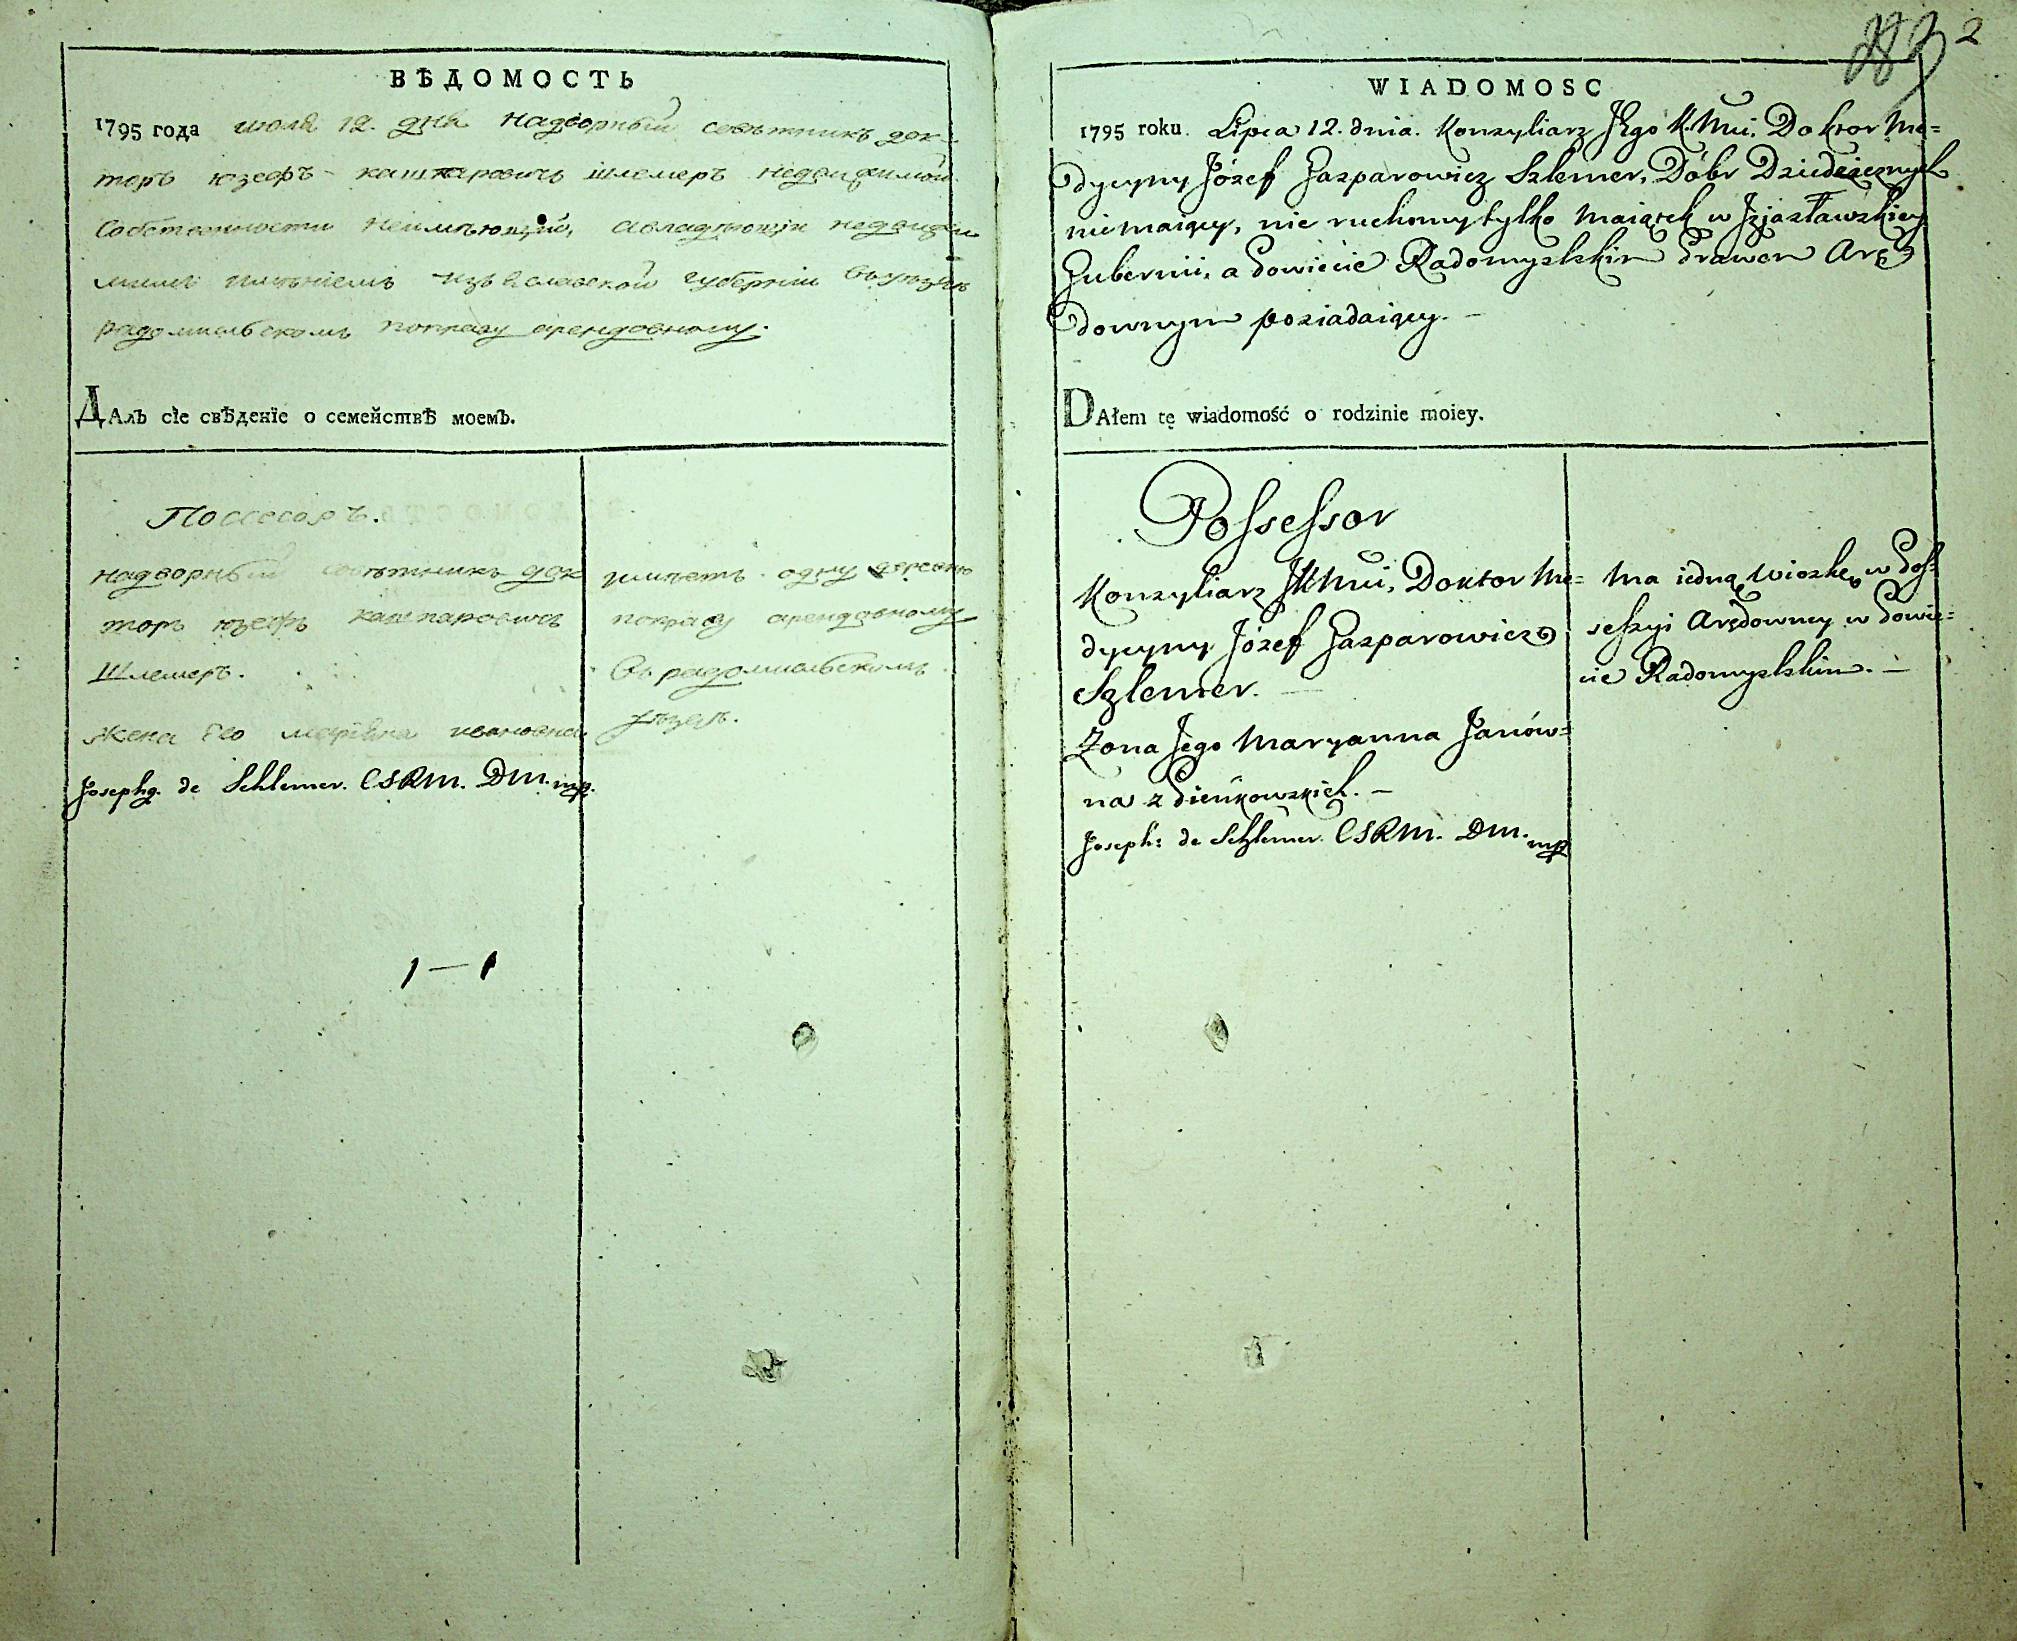 ВѢДОМОСТЬ
1795 года июля 12. дня надворный советникъ док-
торъ юзефъ каспаровичъ шлемеръ недвижимой
собственности неимѣющій, авладѣющій недвижи
мымъ имѣніемъ изъяславской губерніи въуѣздѣ
радомысльскомъ поправу арендовному.
ДАлЪ сїе свѢденїе о семействѢ моемЪ.
Поссесоръ.
надворный совѣтникъ док
торъ юзефъ каспаровичъ
Шлемеръ.
жена его марїяна ивановна
Josephg. de Schlemer. CSRM. DM. mp.
имѣетъ одну деревню
поправу арендовному
въ радомысльскомъ
уѣздѣ.
1 — 1
2
WIADOMOSC
1795 roku. Lipca 12. dnia. Konzyliarz JKgo K. Mci. Doktor Me=
dycyny Józef Gazparowicz Szlemer, Dóbr Dziedzicznych
niemaiący, nie ruchomy tylko Maiątek w Izjasławskiey
Gubernii, a Powiecie Radomyslskim Prawem Arę
downym posiadaiący. —
DAłem tę wiadomość o rodzinie moiey.
Possessor
Konzyliarz JKMci, Doktor Me=
dycyny Józef Gazparowicz
Szlemer. —
Zona Jego Maryanna Janów=
na z Pieńkowskich. —
Joseph: de Schlemer. CSRM. DM. mp
Ma iedną Wioskę w Pos=
sessyi Arędowney w Powie=
cie Radomyslskim. —